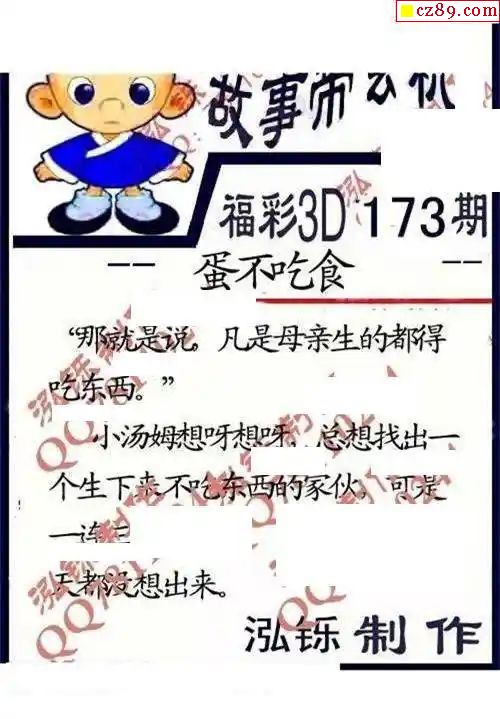 cz89.com
故事帝
福彩3D 173期
-- 蛋不吃食 --
“那就是说。凡是母亲生的都得
吃东西。”
小汤姆想呀想呀，总想找出一
个生下来不吃东西的家伙，可是
一连三
天都没想出来。
泓铄制作